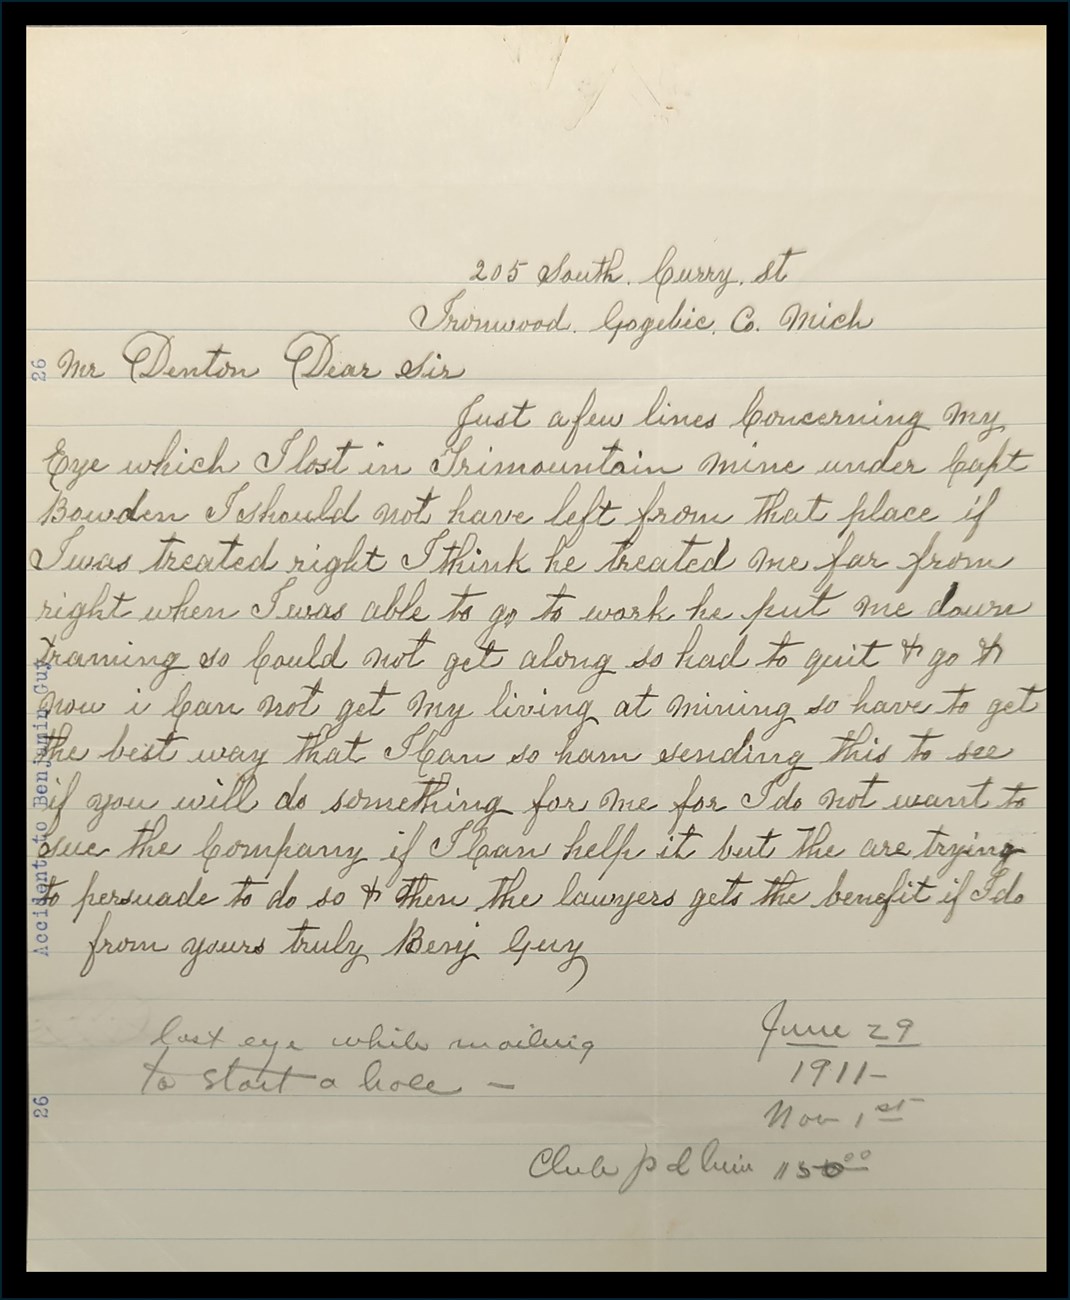 205 South. Curry. St
Ironwood. Gogebic. Co. Mich
Mr Denton Dear Sir
Just a few lines Concerning My
Eye which I lost in Trimountain mine under Capt
Bowden I should not have left from that place if
I was treated right I think he treated me far from
right when I was able to go to work he put me down
traming so Could not get along so had to quit & go &
now i Can not get My living at mining so have to get
the best way that I Can so ham sending this to see
if you will do something for me for I do not want to
sue the Company if I Can help it but the are trying
to persuade to do so & then the lawyers gets the benefit if I do
from yours truly Benj Guy
lost eye while
to start a hole —
June 29
1911-
Nov 1st
Club pd him
26
Accident to Benjamin Guy
26